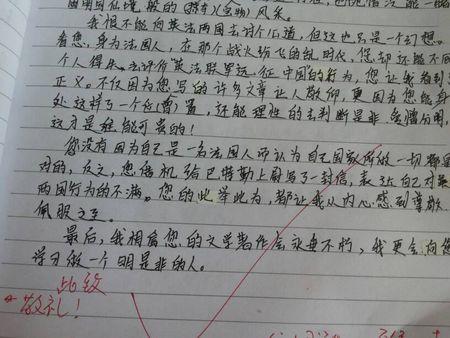 我恨不能向英法两国去讨个公道,但这也只是一个幻想。
看您,身为法国人,在那个战火纷飞的乱时代,您却还能不
个人得失,去评价英法联军远征中国的行为,您让我看到
正义。不仅因为您写的许多文章让人敬仰,更因为您能身
处这样子一个位(曾)置,还能理性的去判断是非,爱憎分明,
这才是难能可贵的!
您没有因为自己是一名法国人而认为自己国家所做一切都是
对的,反之,您借机给巴特勒上尉写了一封信,表了自己对
两国行为的不满。您的此举此为,都让我从内心感到尊敬
佩服之至。
最后,我相信您的文学著作会永垂不朽,我更会向您
学习做一个明是非的人。
此致
敬礼!